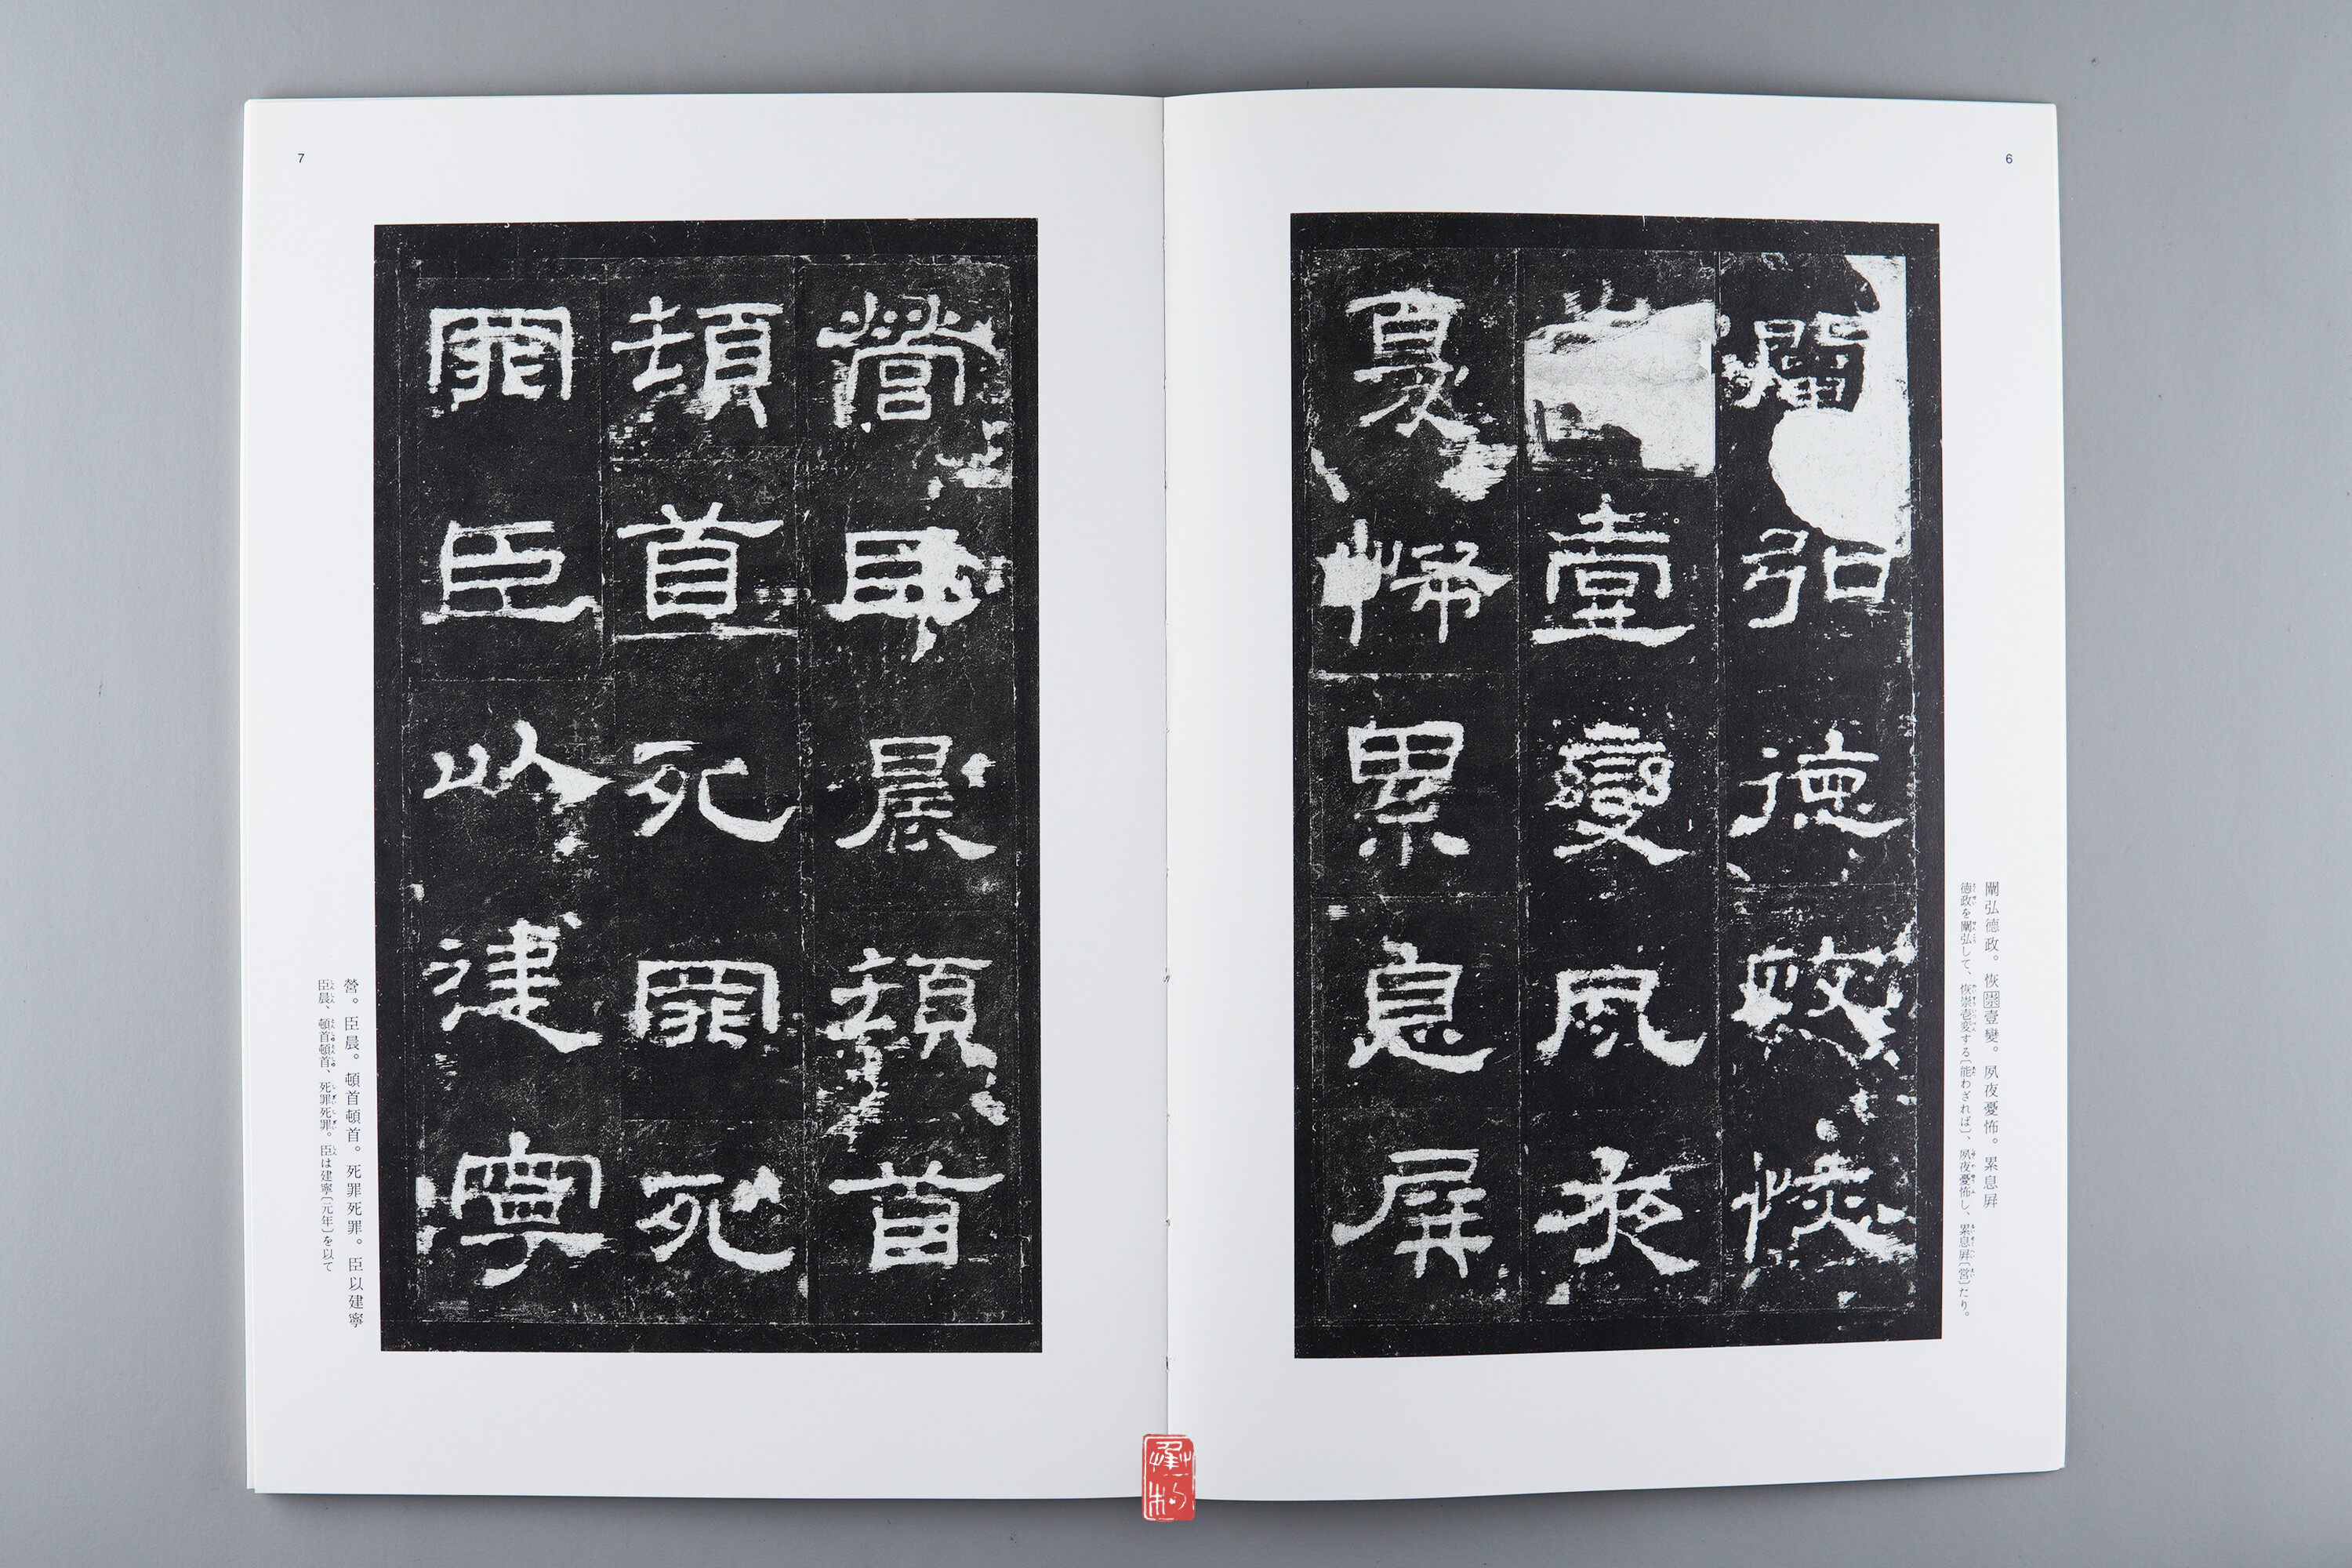 6
闡弘德政恢
壹變夙夜
憂怖累息屏
闡弘德政。恢崇壹變。夙夜憂怖。累息屏
徳政を闡弘して、恢崇壱変する〔能わざれば〕、夙夜憂怖し、累息屏〔営〕たり。
7
營臣晨頓首
頓首死罪死
罪臣以建寧
營。臣晨。頓首頓首。死罪死罪。臣以建寧
臣晨、頓首頓首、死罪死罪。臣は建寧〔元年〕を以て